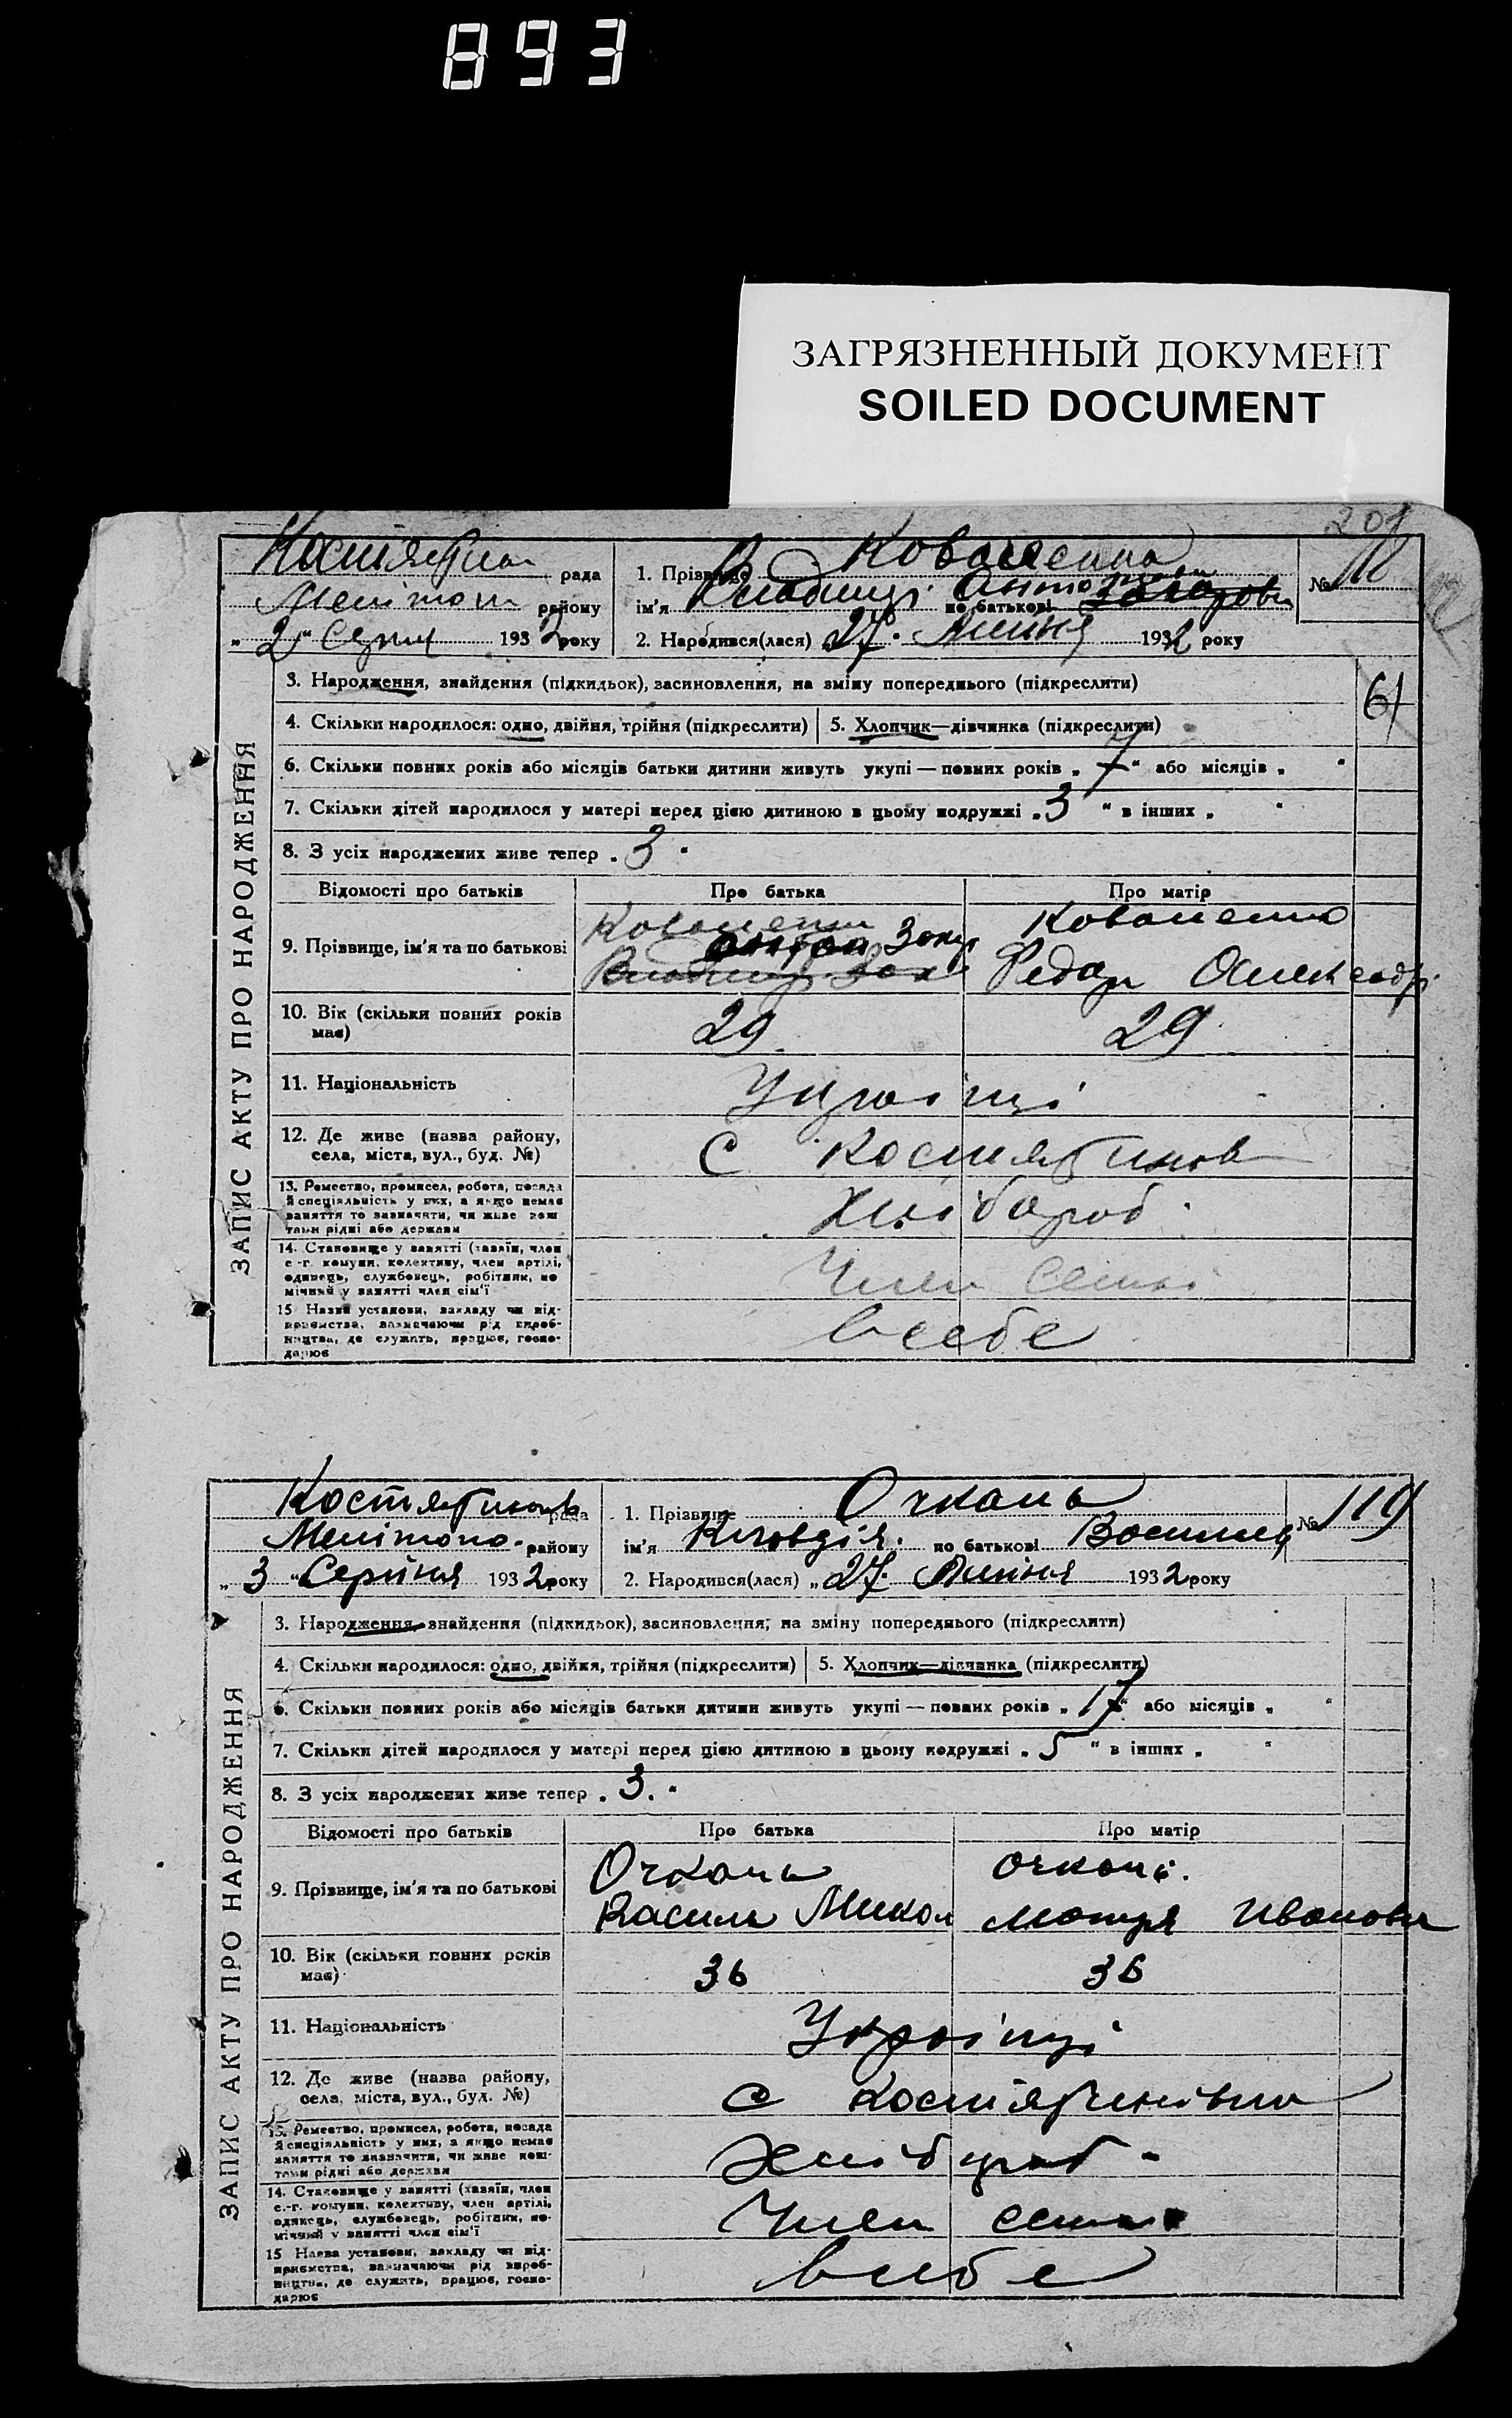 893
ЗАГРЯЗНЕННЫЙ ДОКУМЕНТ
SOILED DOCUMENT
201
рада
району
„ 2 “ 1932 року
1. Прізвище Коваленко
ім'я по батькові
2. Народився(лася) „27“ Липня 1932 року
№
61
ЗАПИС АКТУ ПРО НАРОДЖЕННЯ
3. Народження, знайдення (підкидьок), засиновлення, на зміну попереднього (підкреслити)
4. Скільки народилося: одно, двійня, трійня (підкреслити) 5. Хлопчик—дівчинка (підкреслити)
6. Скільки повних років або місяців батьки дитини живуть укупі — повних років „ 7 “ або місяців „ “
7. Скільки дітей народилося у матері перед цією дитиною в цьому подружжі „ 3 “ в інших „ “
8. З усіх народжених живе тепер „ 3 “
Відомості про батьків Про батька Про матір
9. Прізвище, ім'я та по батькові
Коваленко Коваленко
Антон Захар
10. Вік (скільки повних років має) 29 29
11. Національність Українці
12. Де живе (назва району, села, міста, вул., буд. №) С
13. Ремество, промисел, робота, посада й спеціяльність у них, а якщо немає заняття то зазначити, чи живе коштами рідні або держави Хлібороб
14. Становище у занятті (хазяїн, член с.-г. комуни, колективу, член артілі, одинець, службовець, робітник, помічний у занятті член сім'ї Член
15 Назва установи, закладу чи підприємства, зазначаючи рід виробництва, де служить, працює, господарює в себе
рада
району
„ 3 “ Серпня 1932 року
1. Прізвище Очкань
ім'я Клавдія по батькові
2. Народився(лася) „27“ Липня 1932 року
№ 119
ЗАПИС АКТУ ПРО НАРОДЖЕННЯ
3. Народження, знайдення (підкидьок), засиновлення, на зміну попереднього (підкреслити)
4. Скільки народилося: одно, двійня, трійня (підкреслити) 5. Хлопчик—дівчинка (підкреслити)
6. Скільки повних років або місяців батьки дитини живуть укупі — повних років „ 17 “ або місяців „ “
7. Скільки дітей народилося у матері перед цією дитиною в цьому подружжі „ 5 “ в інших „ “
8. З усіх народжених живе тепер „ 3. “
Відомості про батьків Про батька Про матір
9. Прізвище, ім'я та по батькові
Очкань Очкань
Василь Микол Мотря Иванови
10. Вік (скільки повних років має) 36 36
11. Національність Українці
12. Де живе (назва району, села, міста, вул., буд. №) с
13. Ремество, промисел, робота, посада й спеціяльність у них, а якщо немає заняття то зазначити, чи живе коштами рідні або держави
14. Становище у занятті (хазяїн, член с.-г. комуни, колективу, член артілі, одинець, службовець, робітник, помічний у занятті член сім'ї Член
15 Назва установи, закладу чи підприємства, зазначаючи рід виробництва, де служить, працює, господарює в себе